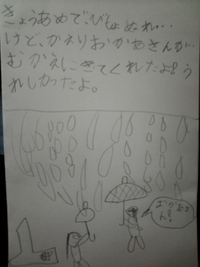 きょうあめで、びしょぬれ…
けど、かえりおかあさんが…
むかえにきてくれたよ!う
れしかったよ。